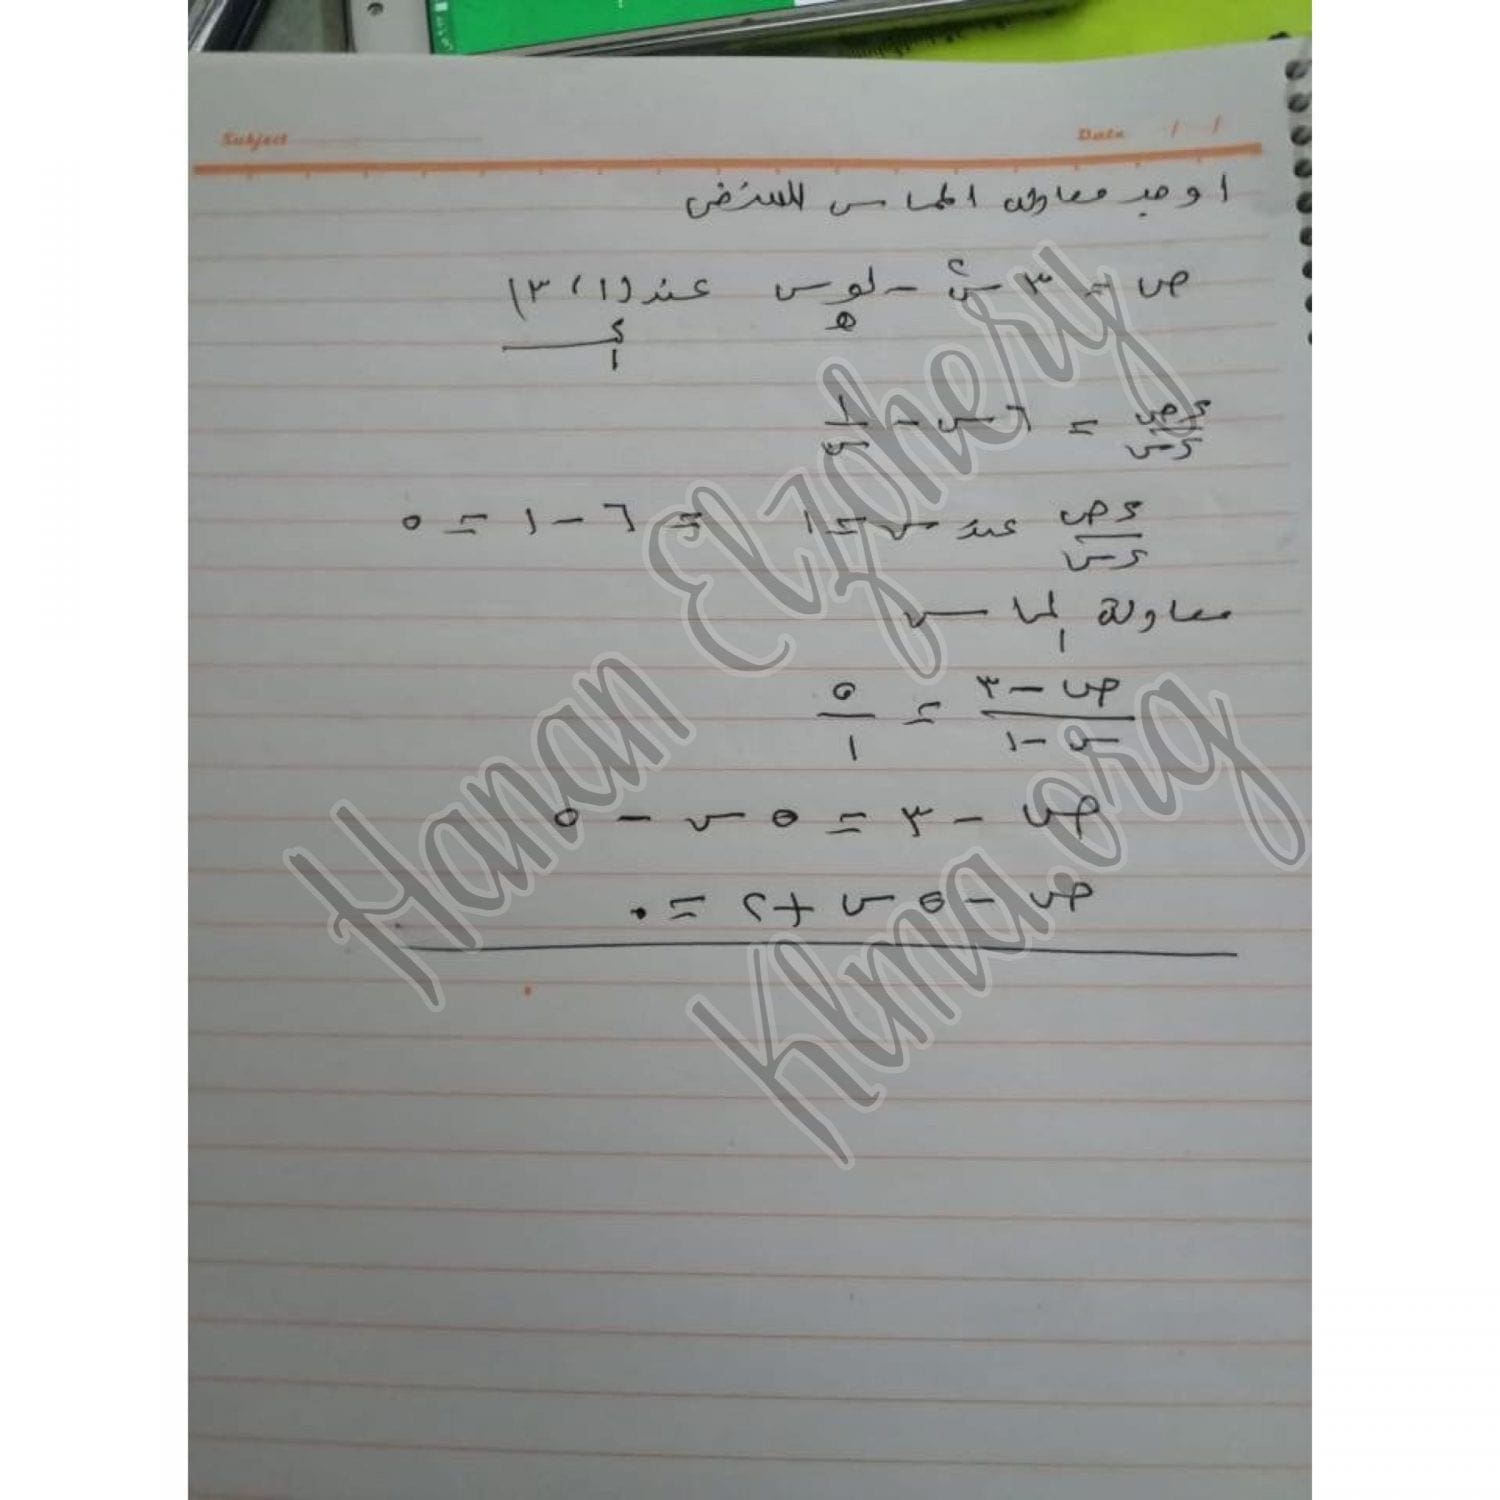 Subject
Date / /
اوجد معادلة المماس للمنحنى
ص = ٣ س٢ - لو س عند (١ ، ٣)
هـ
ءص / ءس = ٦ س - ١ / س
ءص / ءس عند س = ١ = ٦ - ١ = ٥
معادلة المماس
ص - ٣ / س - ١ = ٥ / ١
ص - ٣ = ٥ س - ٥
ص - ٥ س + ٢ = ٠
Hanan Elzohery
Klma.org